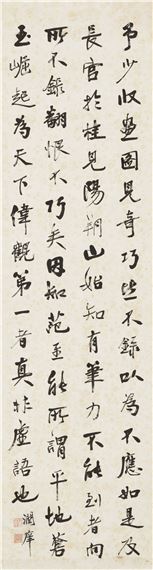 予少收畫圖見奇巧皆不錄以為不應如是及
長官於桂見陽朔山始知有筆力不能到者向
所不錄翻恨不巧矣因知范至能所謂平地蒼
玉崛起為天下偉觀第一者真非虛語也 潤庠